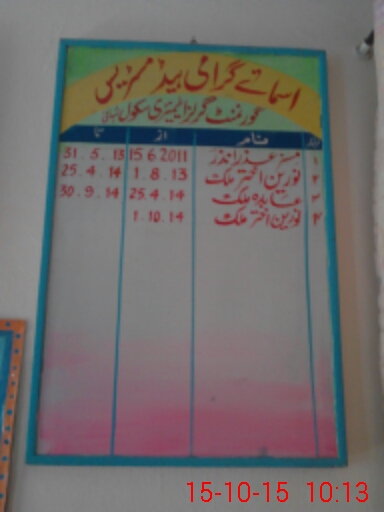 اسمائے گرامی ہیڈ مسٹریس
گورنمنٹ گرلز ایلیمنٹری سکول
نمبر نام از تا
۱ مسز عذرا نذر 15 6 2011 31. 5. 13
۲ نورین اختر ملک 1. 8. 13 25. 4. 14
۳ عابدہ ملک 25. 4. 14 30. 9. 14
۴ نورین اختر ملک 1. 10. 14
15-10-15 10:13